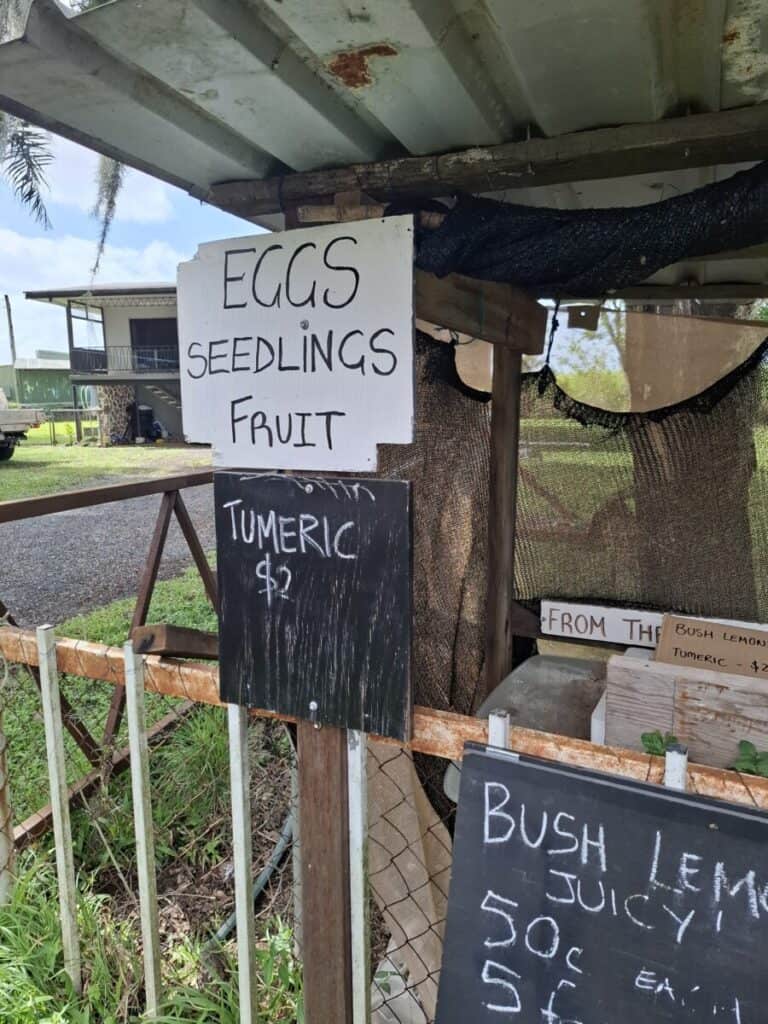 EGGS
SEEDLINGS
FRUIT
TUMERIC
$2
FROM THE
BUSH LEMON
TUMERIC - $2
BUSH LEMO
JUICY!
50c EACH
5 f